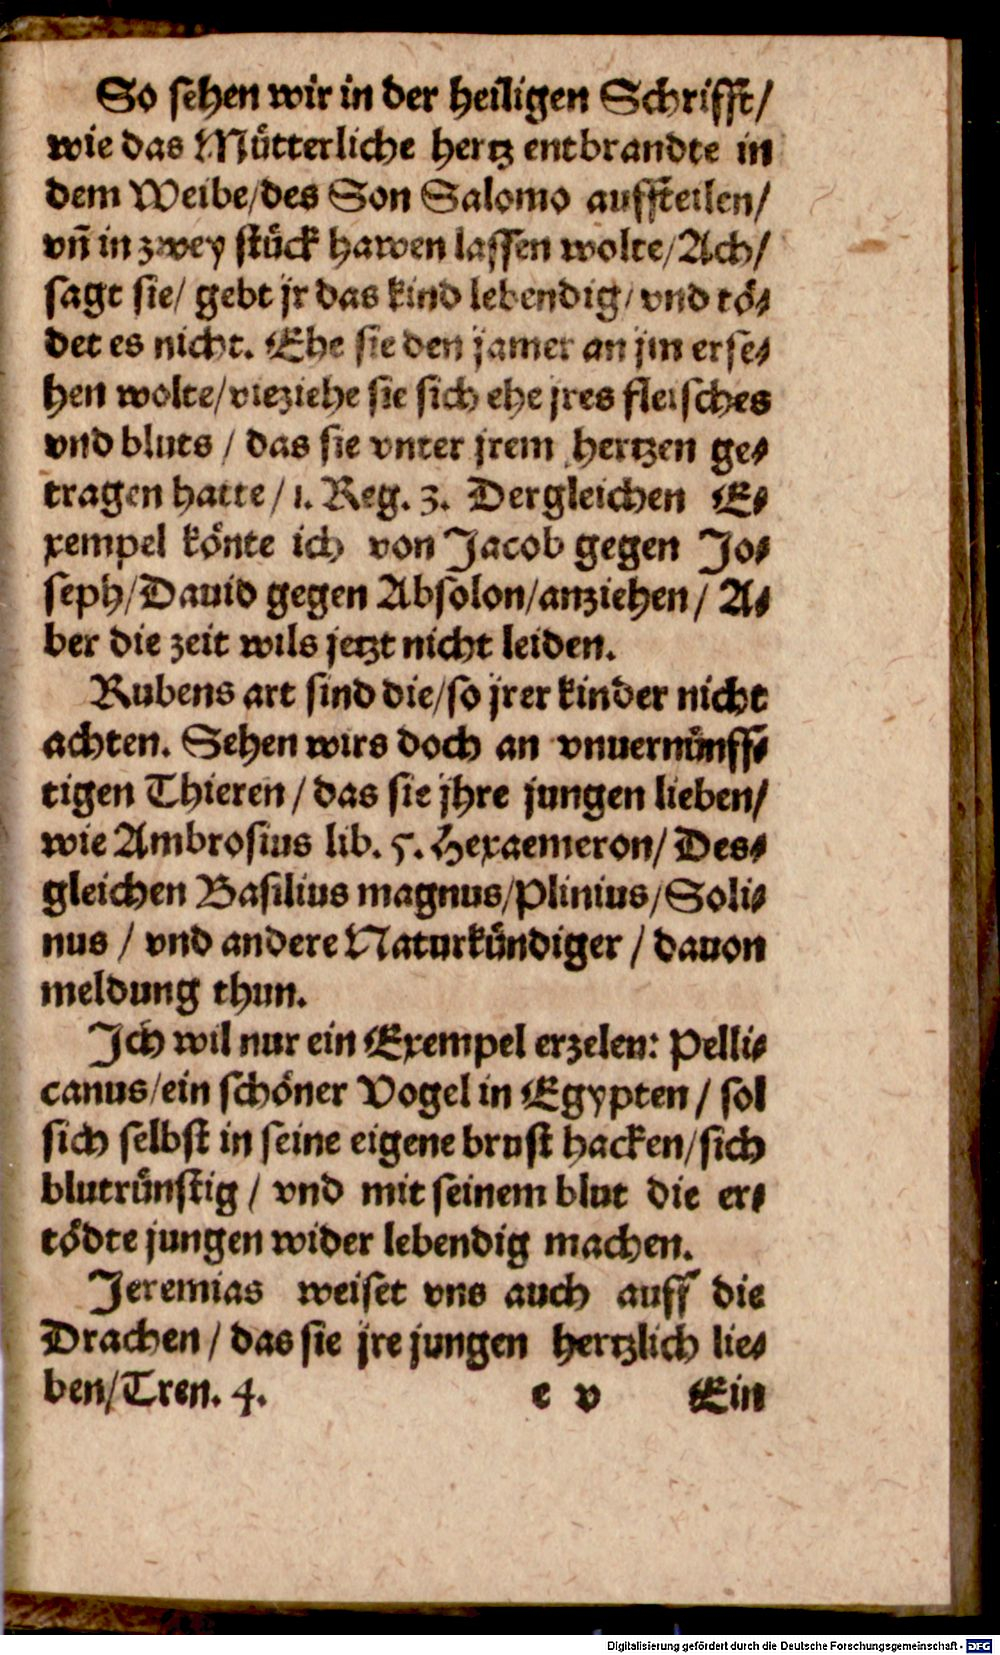 So sehen wir in der heiligen Schrifft/
wie das Mütterliche hertz entbrandte in
dem Weibe/des Son Salomo auffteilen/
vñ in zwey stück hawen lassen wolte/Ach/
sagt sie/ gebt jr das kind lebendig/vnd tö-
det es nicht. Ehe sie den jamer an jm erse-
hen wolte/vieziehe sie sich ehe jres fleisches
vnd bluts / das sie vnter jrem hertzen ge-
tragen hatte/1. Reg. 3. Dergleichen E-
xempel könte ich von Jacob gegen Jo-
seph/Dauid gegen Absolon/anziehen/ A-
ber die zeit wils jetzt nicht leiden.
Rubens art sind die/so jrer kinder nicht
achten. Sehen wirs doch an vnuernünff-
tigen Thieren/das sie jhre jungen lieben/
wie Ambrosius lib. 5. Hexaemeron/Des-
gleichen Basilius magnus/Plinius/Soli-
nus / vnd andere Naturkündiger / dauon
meldung thun.
Ich wil nur ein Exempel erzelen: Pelli-
canus/ein schöner Vogel in Egypten / sol
sich selbst in seine eigene brust hacken/sich
blutrünstig / vnd mit seinem blut die er-
tödte jungen wider lebendig machen.
Jeremias weiset vns auch auff die
Drachen / das sie jre jungen hertzlich lie-
ben/Tren. 4.
e v Ein
Digitalisierung gefördert durch die Deutsche Forschungsgemeinschaft - DFG